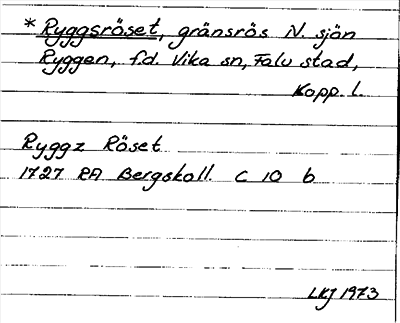 * Ryggsröset, gränsrös N. sjön
Ryggen, f.d. Vika sn, Falu stad,
Kopp. l.
Ryggz Röset
1727 RA Bergskoll. C 10 b
LKJ 1973